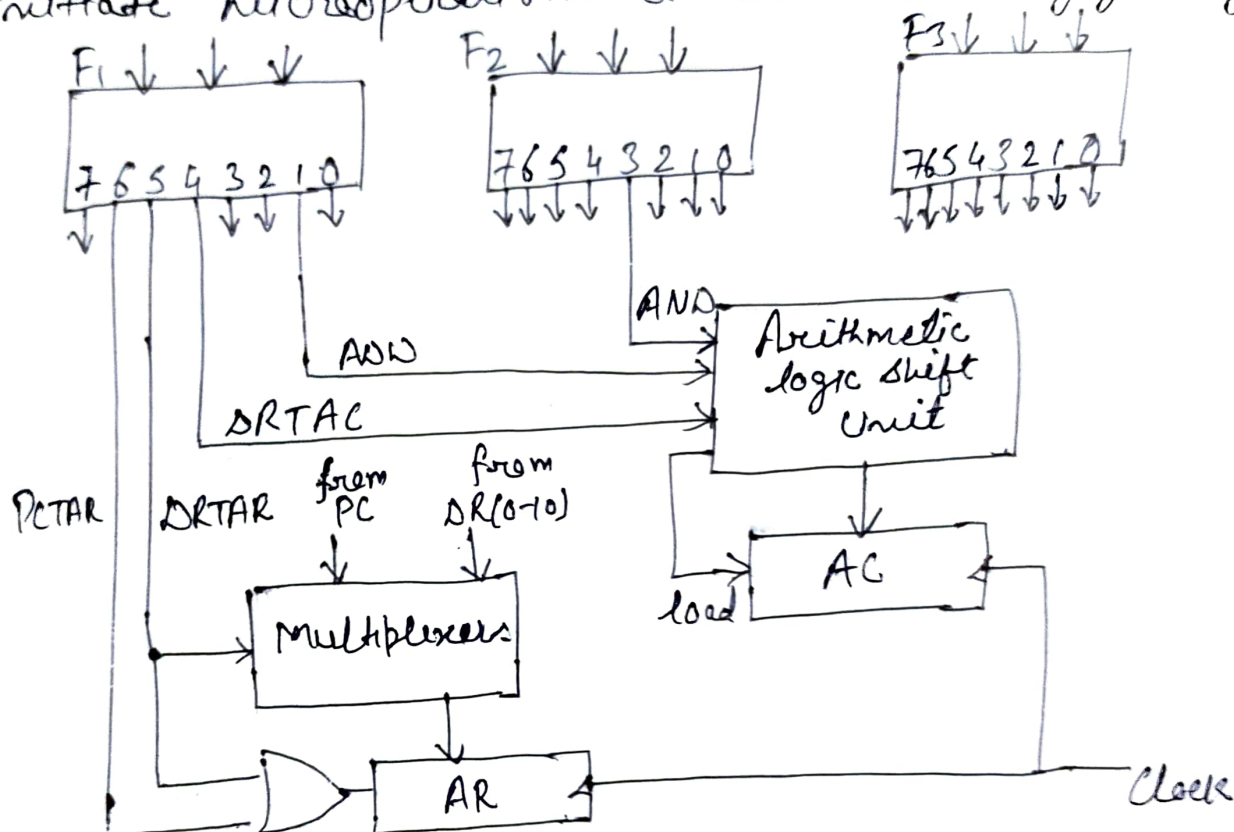 F1
F2
F3
7 6 5 4 3 2 1 0
7 6 5 4 3 2 1 0
7 6 5 4 3 2 1 0
AND
ADD
DRTAC
Arithmetic
logic shift
Unit
PCTAR
DRTAR
from
PC
from
DR(0-10)
load
AC
Multiplexers
AR
Clock